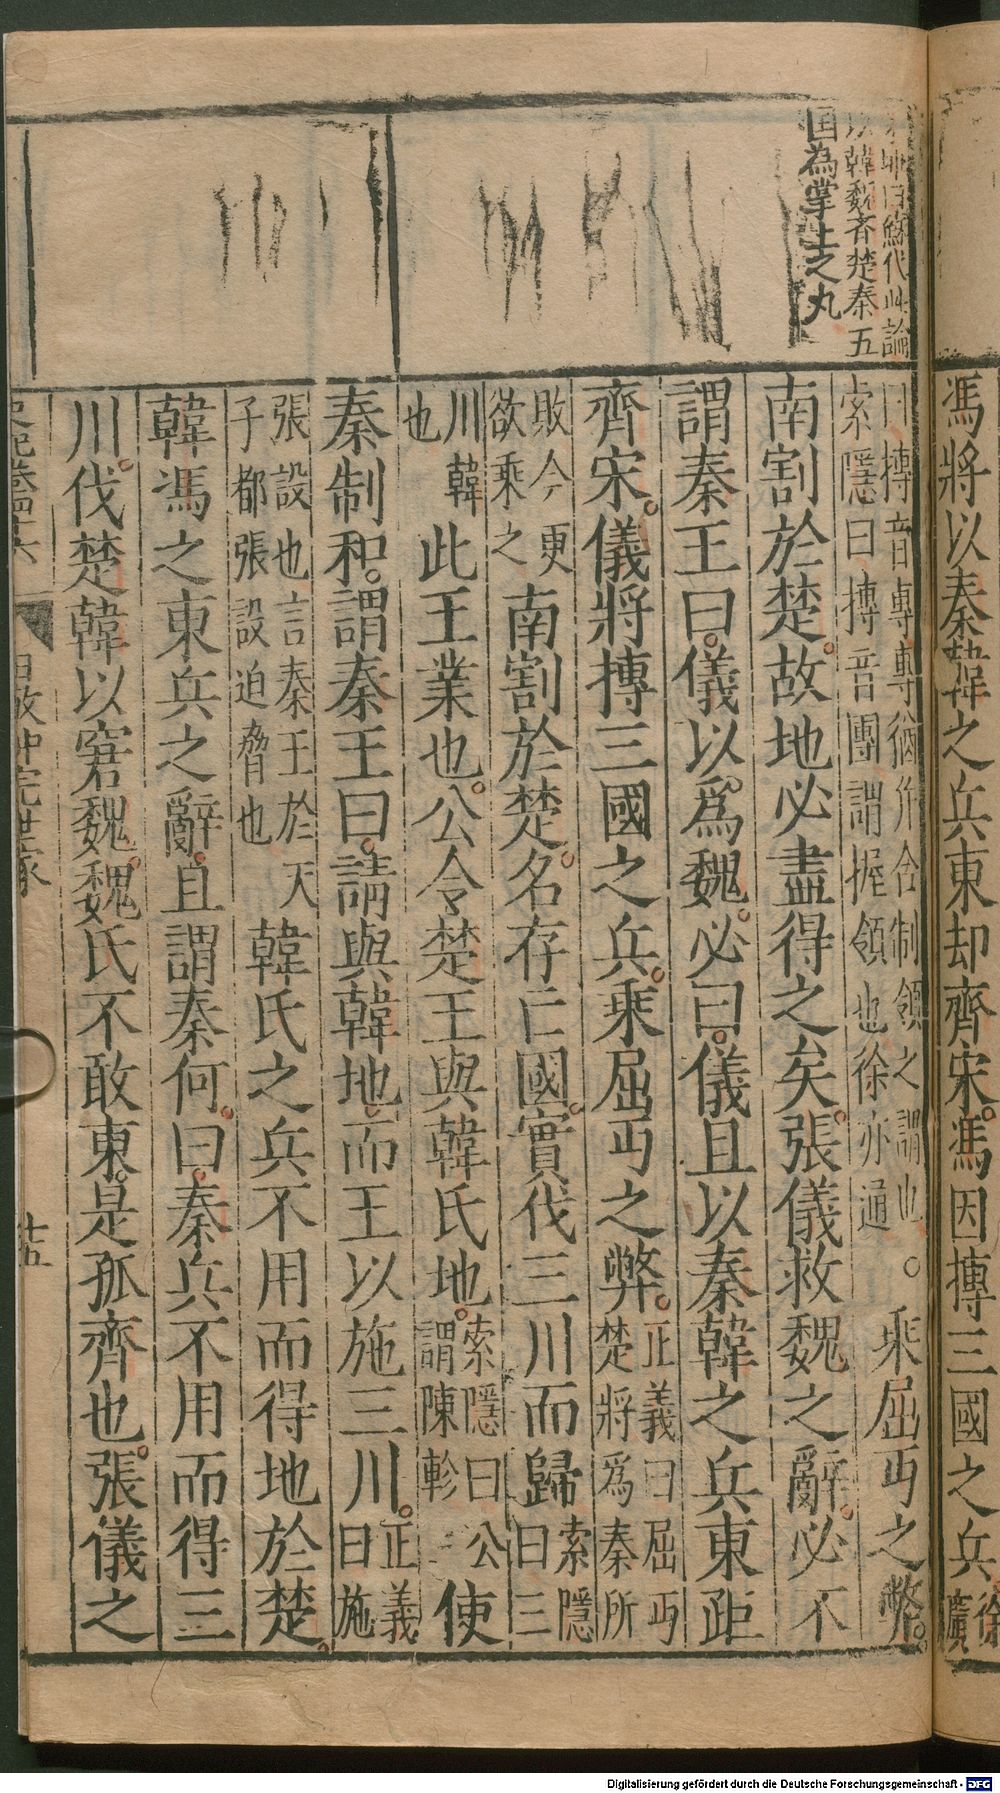 馮將以秦韓之兵東却齊宋馮因摶三國之兵徐廣
曰摶音專專猶幷合制領之謂也
索隱曰摶音團謂握領也徐亦通
。乘屈丐之弊
南割於楚故地必盡得之矣張儀救魏之辭必不
謂秦王曰儀以爲魏必曰儀且以秦韓之兵東距
齊宋儀將摶三國之兵乘屈丐之弊正義曰屈丐
楚將爲秦所
敗今更
欲乘之
南割於楚名存亡國實伐三川而歸索隱
曰三
川韓
也
此王業也公令楚王與韓氏地索隱曰公
謂陳軫
使
秦制和謂秦王曰請與韓地而王以施三川正義
曰施
張設也言秦王於天
子都張設迫脅也
韓氏之兵不用而得地於楚
韓馮之東兵之辭且謂秦何曰秦兵不用而得三
川伐楚韓以窘魏魏氏不敢東是孤齊也張儀之
曰蘇代此論
以韓魏齊楚秦五
国為掌上之丸
史記卷四十六
田敬仲完世家
十五
Digitalisierung gefördert durch die Deutsche Forschungsgemeinschaft - DFG